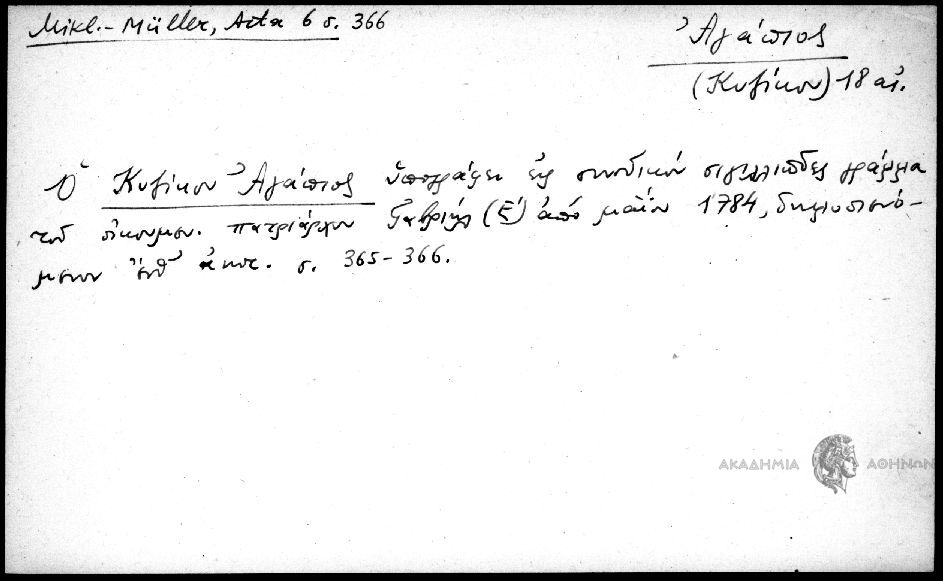 Mikl.-Müller, Acta 6 σ. 366
Ἀγάπιος
(Κυζίκου) 18 αἰ.
Ὁ Κυζίκου Ἀγάπιος ὑπογράφει εἰς συνοδικόν σιγιλλιῶδες γράμμα
τοῦ οἰκουμεν. πατριάρχου Γαβριήλ (Ξ΄) ἀπό μαΐου 1784, δημοσιευό-
μενον ἔνθ' ἀνωτ. σ. 365-366.
ΑΚΑΔΗΜΙΑ ΑΘΗΝΩΝ